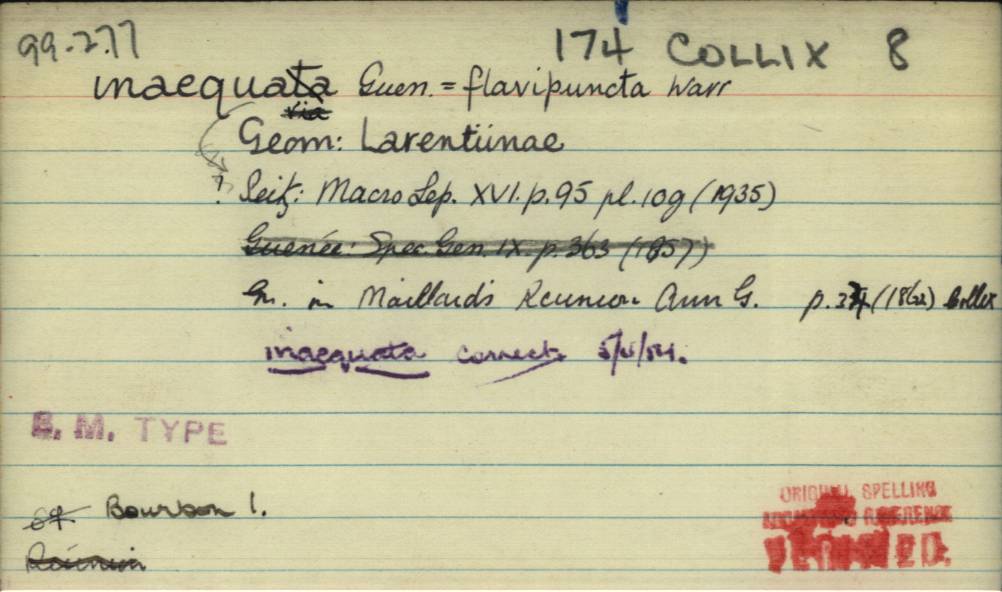 99-2.77
174 COLLIX 8
inaequata Guen. = flavipuncta Warr
via
Geom: Larentiinae
? Seitz: Macro Lep. XVI. p. 95 pl. 10g (1935)
Guenée: Spec. Gen. IX. p. 363 (1857)
Gn. in Maillard's Reunion Ann G. p. (1862) Collix
inaequata correct
B. M. TYPE
Bourbon I.
Réunion
ORIGINAL SPELLING
REFERENCE